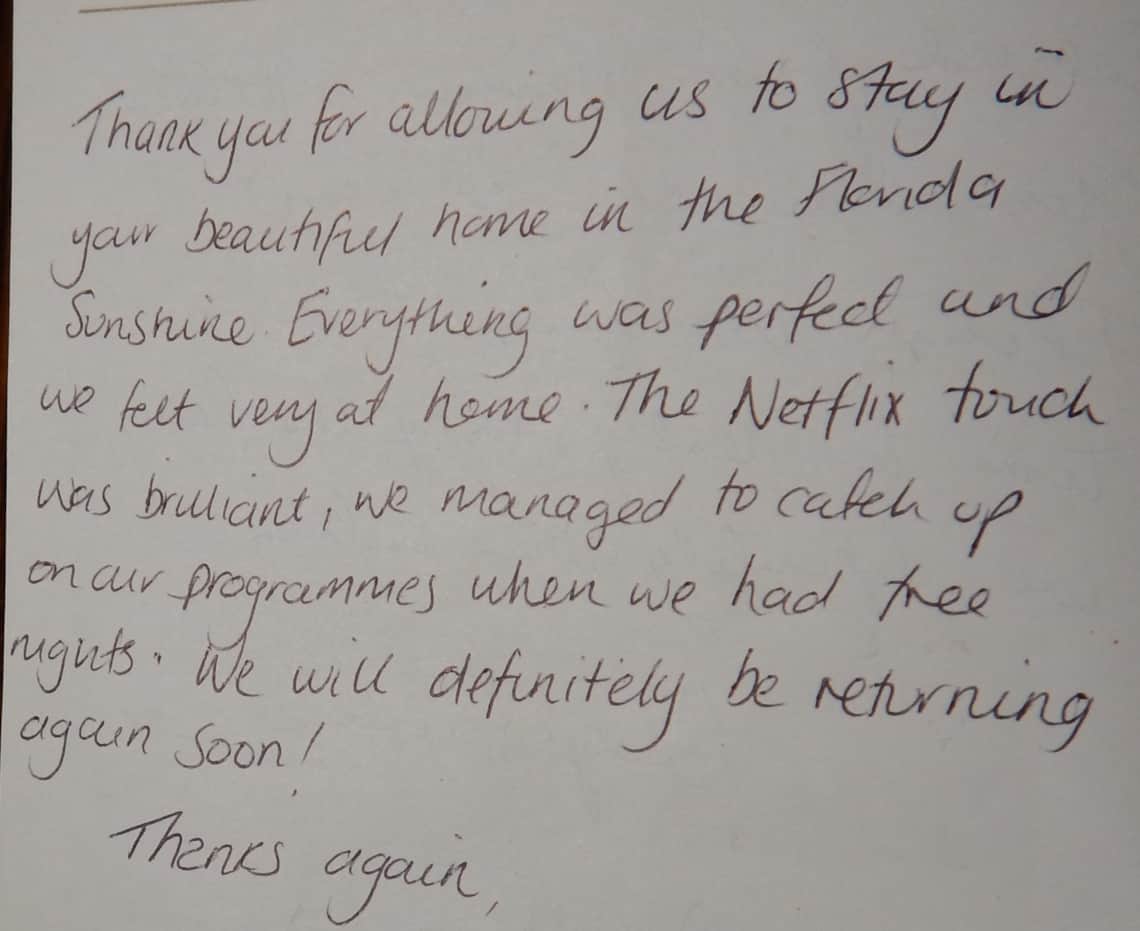 Thank you for allowing us to stay in
your beautiful home in the Florida
Sunshine. Everything was perfect and
we felt very at home. The Netflix touch
was brilliant, we managed to catch up
on our programmes when we had free
nights. We will definitely be returning
again soon!
Thanks again,